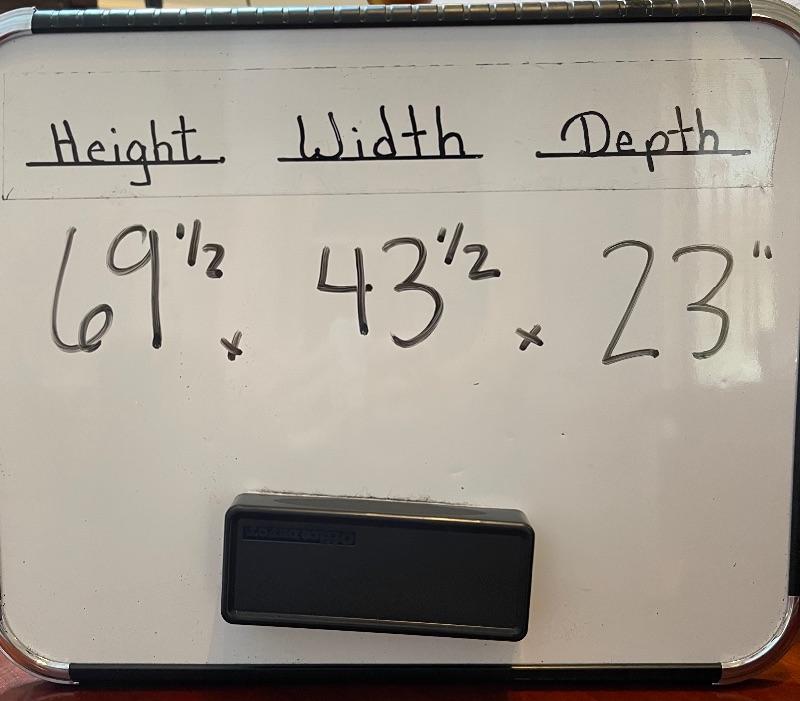 Height Width Depth
69 1/2 x 43 1/2 x 23"